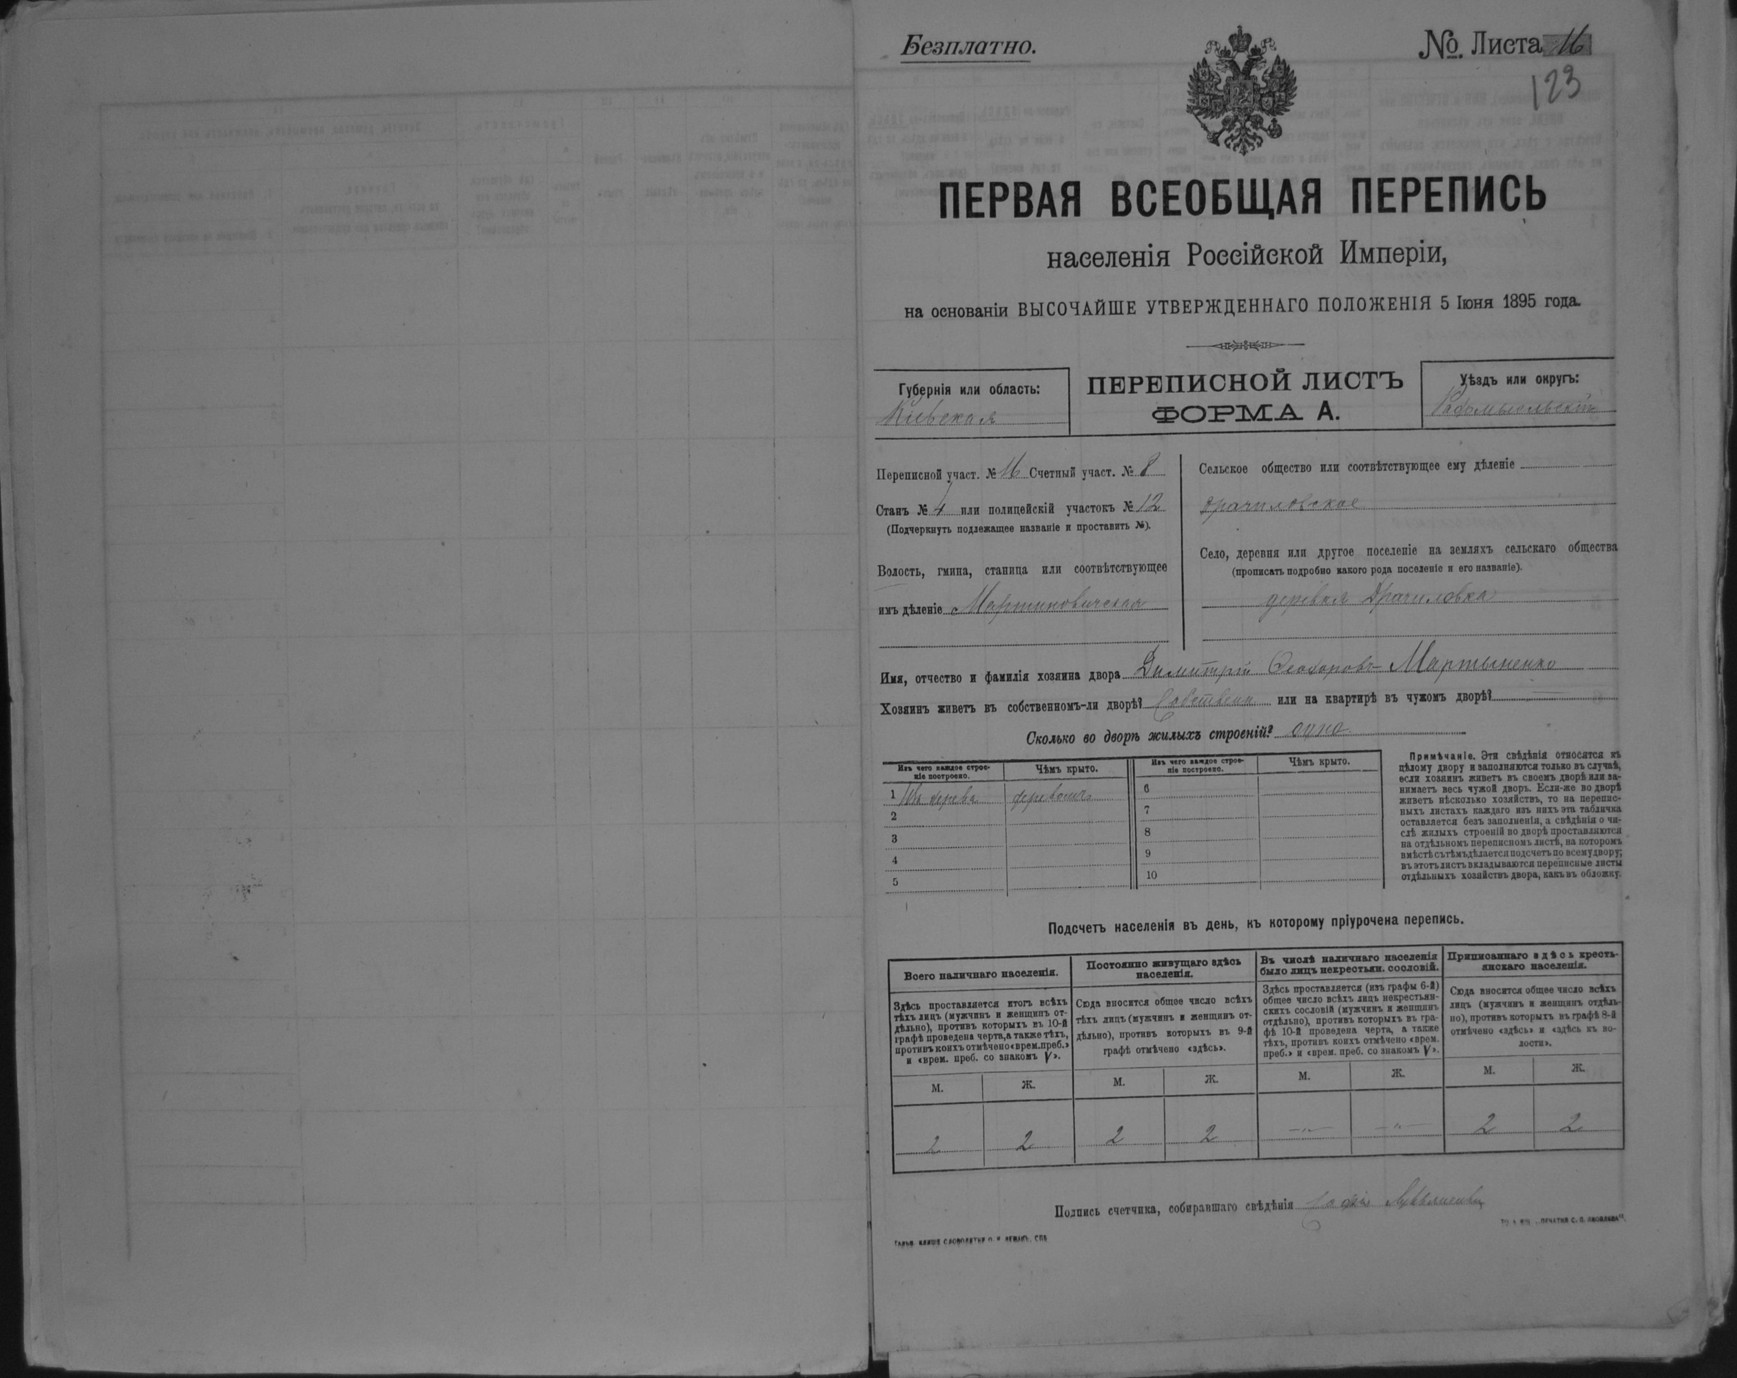 Безплатно.
№ Листа 16
123
ПЕРВАЯ ВСЕОБЩАЯ ПЕРЕПИСЬ
населенія Россійской Имперіи,
на основаніи ВЫСОЧАЙШЕ УТВЕРЖДЕННАГО ПОЛОЖЕНІЯ 5 Іюня 1895 года.
Губернія или область:
Кіевская
ПЕРЕПИСНОЙ ЛИСТЪ
ФОРМА А.
Уѣздъ или округъ:
Радомысльскій
Переписной участ. № 16 Счетный участ. № 8
Станъ № 4 или полицейскій участокъ № 12
(Подчеркнуть подлежащее названіе и проставить №).
Волость, гмина, станица или соотвѣтствующее
имъ дѣленіе Мартиновичская
Сельское общество или соотвѣтствующее ему дѣленіе
Драчиловское
Село, деревня или другое поселеніе на земляхъ сельскаго общества
(прописать подробно какого рода поселеніе и его названіе).
деревня Драчиловка
Имя, отчество и фамилія хозяина двора Димитрій Ѳеодоровъ Мартыненко
Хозяинъ живетъ въ собственномъ-ли дворѣ? Собствен или на квартирѣ въ чужомъ дворѣ? —
Сколько во дворѣ жилыхъ строеній? одно
Изъ чего каждое строе-
ніе построено.
Чѣмъ крыто.
1 Изъ дерева
2
3
4
5
Изъ чего каждое строе-
ніе построено.
Чѣмъ крыто.
6
7
8
9
10
Примѣчаніе. Эти свѣдѣнія относятся къ
цѣлому двору и заполняются только въ случаѣ,
если хозяинъ живетъ въ своемъ дворѣ или за-
нимаетъ весь чужой дворъ. Если-же во дворѣ
живетъ нѣсколько хозяйствъ, то на перепис-
ныхъ листахъ каждаго изъ нихъ эта табличка
оставляется безъ заполненія, а свѣдѣнія о чи-
слѣ жилыхъ строеній во дворѣ проставляются
на отдѣльномъ переписномъ листѣ, на которомъ
вмѣстѣ съ тѣмъ дѣлается подсчетъ по всему двору;
въ этотъ листъ вкладываются переписные листы
отдѣльныхъ хозяйствъ двора, какъ въ обложку.
Подсчетъ населенія въ день, къ которому пріурочена перепись.
Всего наличнаго населенія.
Здѣсь проставляется итогъ всѣхъ
тѣхъ лицъ (мужчинъ и женщинъ от-
дѣльно), противъ которыхъ въ 10-й
графѣ проведена черта, а также тѣхъ,
противъ коихъ отмѣчено «врем. преб.»
и «врем. преб. со знакомъ V».
М. Ж.
2 2
Постоянно живущаго здѣсь
населенія.
Сюда вносится общее число всѣхъ
тѣхъ лицъ (мужчинъ и женщинъ от-
дѣльно), противъ которыхъ въ 9-й
графѣ отмѣчено «здѣсь».
М. Ж.
2 2
Въ числѣ наличнаго населенія
было лицъ некрестьян. сословій.
Здѣсь проставляется (изъ графы 6-й)
общее число всѣхъ лицъ некрестьян-
скихъ сословій (мужчинъ и женщинъ
отдѣльно), противъ которыхъ въ гра-
фѣ 10-й проведена черта, а также
тѣхъ, противъ коихъ отмѣчено «врем.
преб.» и «врем. преб. со знакомъ V».
М. Ж.
—"— —"—
Приписаннаго здѣсь кресть-
янскаго населенія.
Сюда вносится общее число всѣхъ
лицъ (мужчинъ и женщинъ отдѣль-
но), противъ которыхъ въ графѣ 8-й
отмѣчено «здѣсь» и «здѣсь въ во-
лости».
М. Ж.
2 2
Подпись счетчика, собиравшаго свѣдѣнія